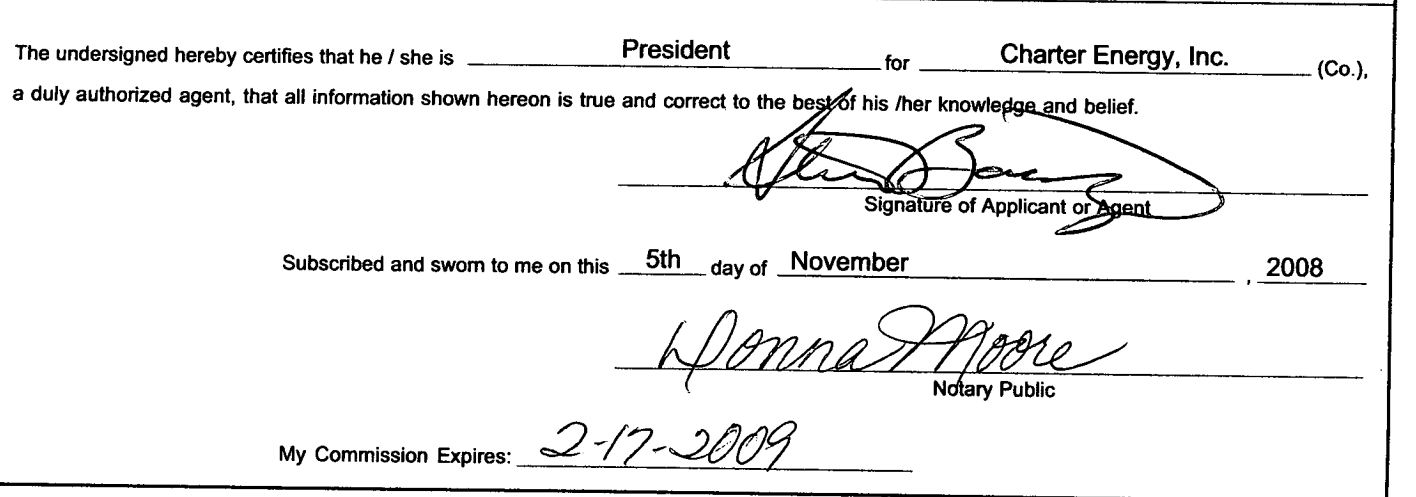 The undersigned hereby certifies that he / she is President for Charter Energy, Inc. (Co.),
a duly authorized agent, that all information shown hereon is true and correct to the best of his /her knowledge and belief.
Signature of Applicant or Agent
Subscribed and sworn to me on this 5th day of November , 2008
Donna Moore
Notary Public
My Commission Expires: 2-17-2009